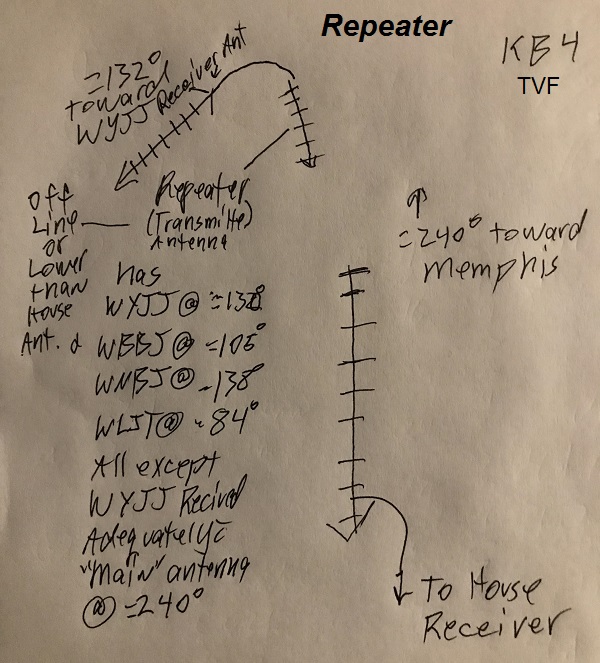 Repeater
KB4
TVF
≈132°
toward
WYJJ
Receiver Ant
Repeater
(Transmitte)
Antenna
Off
Line
or
Lower
than
House
Ant. &
has
WYJJ @ ≈132°
WBBJ @ ≈105°
WNBJ @ ~138°
WLJT @ ~84°
All except
WYJJ Recived
Adequately c̄
"Main" antenna
@ ≈240°
≈240° toward
Memphis
To House
Receiver